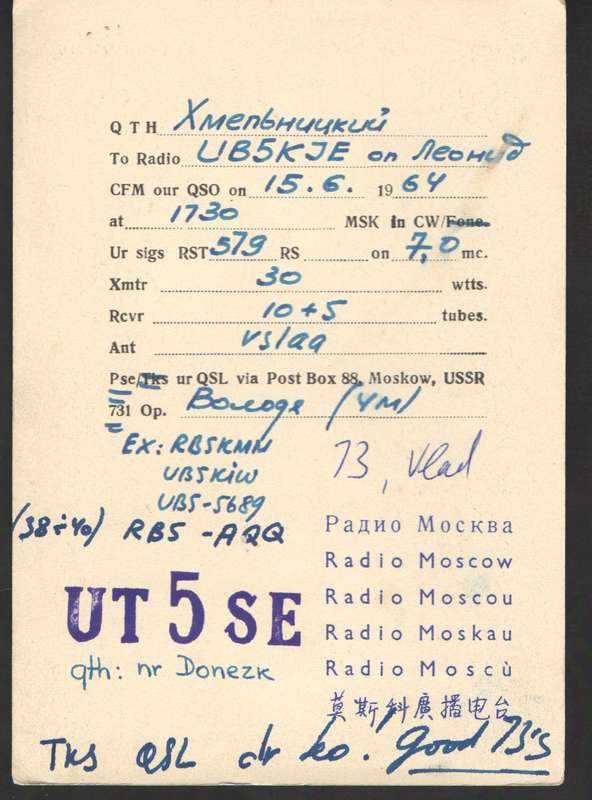 QTH Хмельницкий
To Radio UB5KJE op Леонид
CFM our QSO on 15.6. 1964
at 1730 MSK in CW/Fone.
Ur sigs RST 579 RS on 7,0 mc.
Xmtr 30 wtts.
Rcvr 10+5 tubes.
Ant vs1aa
Pse/Tks ur QSL via Post Box 88, Moskow, USSR
731 Op. Володя (YM)
Ex: RB5KMM
UB5KiW
UB5-5689
73, Vlad
(38÷40) RB5-AQQ
Радио Москва
Radio Moscow
Radio Moscou
Radio Moskau
Radio Moscù
莫斯科廣播电台
UT5SE
qth: nr Donezk
Tks QSL dr ko. good 73's